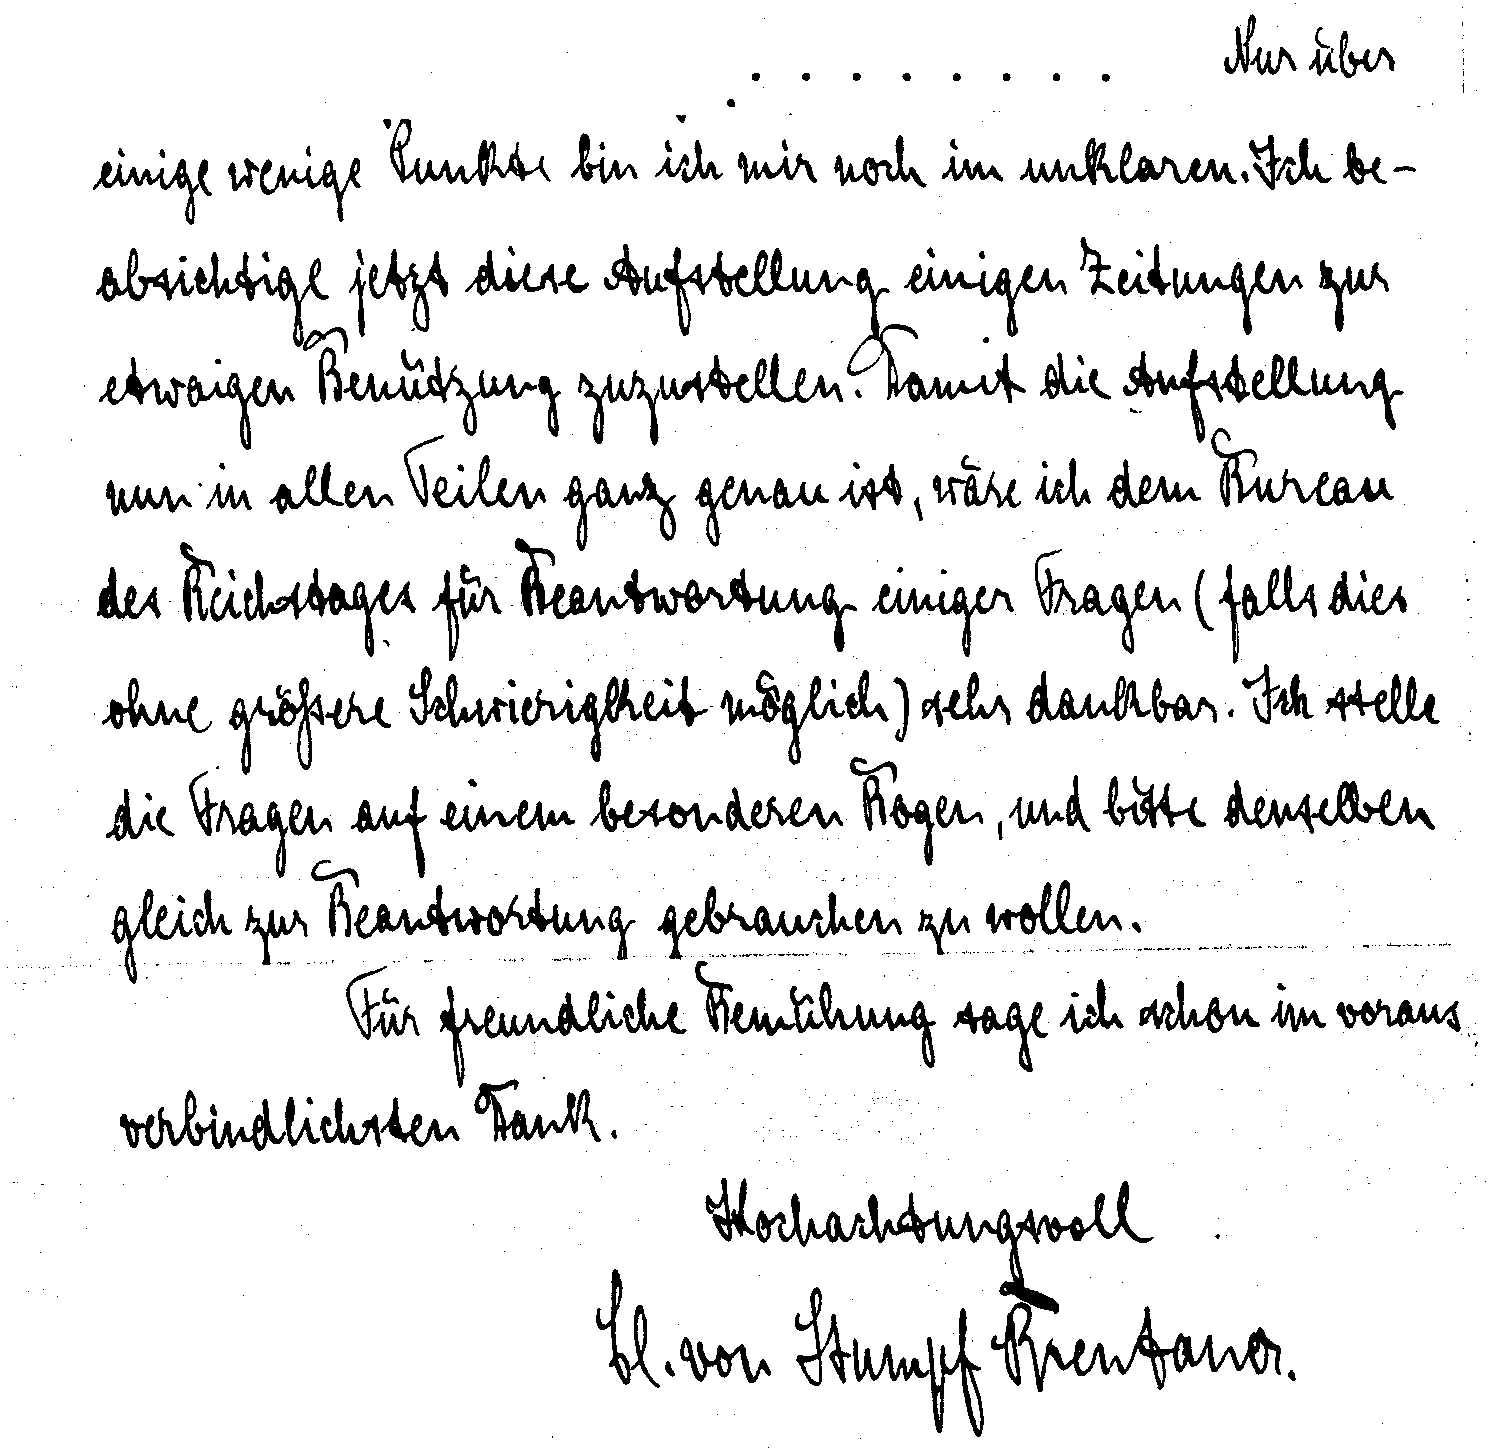 . . . . . . . . . Nur über
einige wenige Punkte bin ich mir noch im unklaren. Ich be-
absichtige jetzt diese Aufstellung einigen Zeitungen zur
etwaigen Benützung zuzustellen. Damit die Aufstellung
nun in allen Teilen ganz genau ist, wäre ich dem Bureau
des Reichstages für Beantwortung einiger Fragen (falls dies
ohne grössere Schwierigkeit möglich) sehr dankbar. Ich stelle
die Fragen auf einem besonderen Bogen, und bitte denselben
gleich zur Beantwortung gebrauchen zu wollen.
Für freundliche Bemühung sage ich schon im voraus
verbindlichsten Dank.
Hochachtungsvoll
Cl. von Stumpf Brentano.